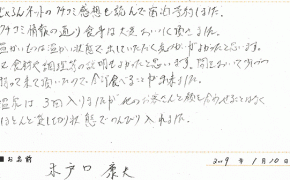 じゃらんネットのクチコミ感想を読んで宿泊予約しました。
クチコミ情報の通り食事は大変おいしく頂きました。
温かいものは温かい状態で出していただく気づかいがよかったと思います。
食材や調理等の説明もよかったと思います。間をおいて
持って来て頂いたので、全部食べることが出来ました。
温泉は3回入りましたが他のお客さんと顔を合わせることはなく
ほとんど貸し切り状態でのんびり入れました。
■お名前
木戸口 康夫
2009年1月10日